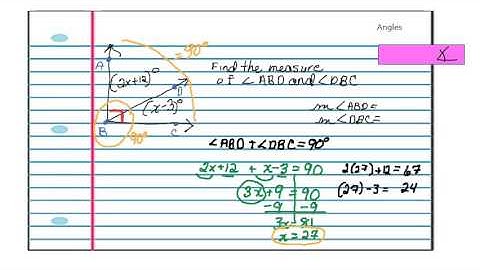 Angles
∡
= 90°
A
(2x+12)°
D
(x-3)°
B
C
90°
Find the measure
of ∠ABD and ∠DBC
m∠ABD=
m∠DBC=
∠ABD + ∠DBC = 90°
2x+12 + x-3 = 90
3x+9 = 90
-9 -9
3x = 81
x = 27
2(27)+12 = 67
(27)-3 = 24